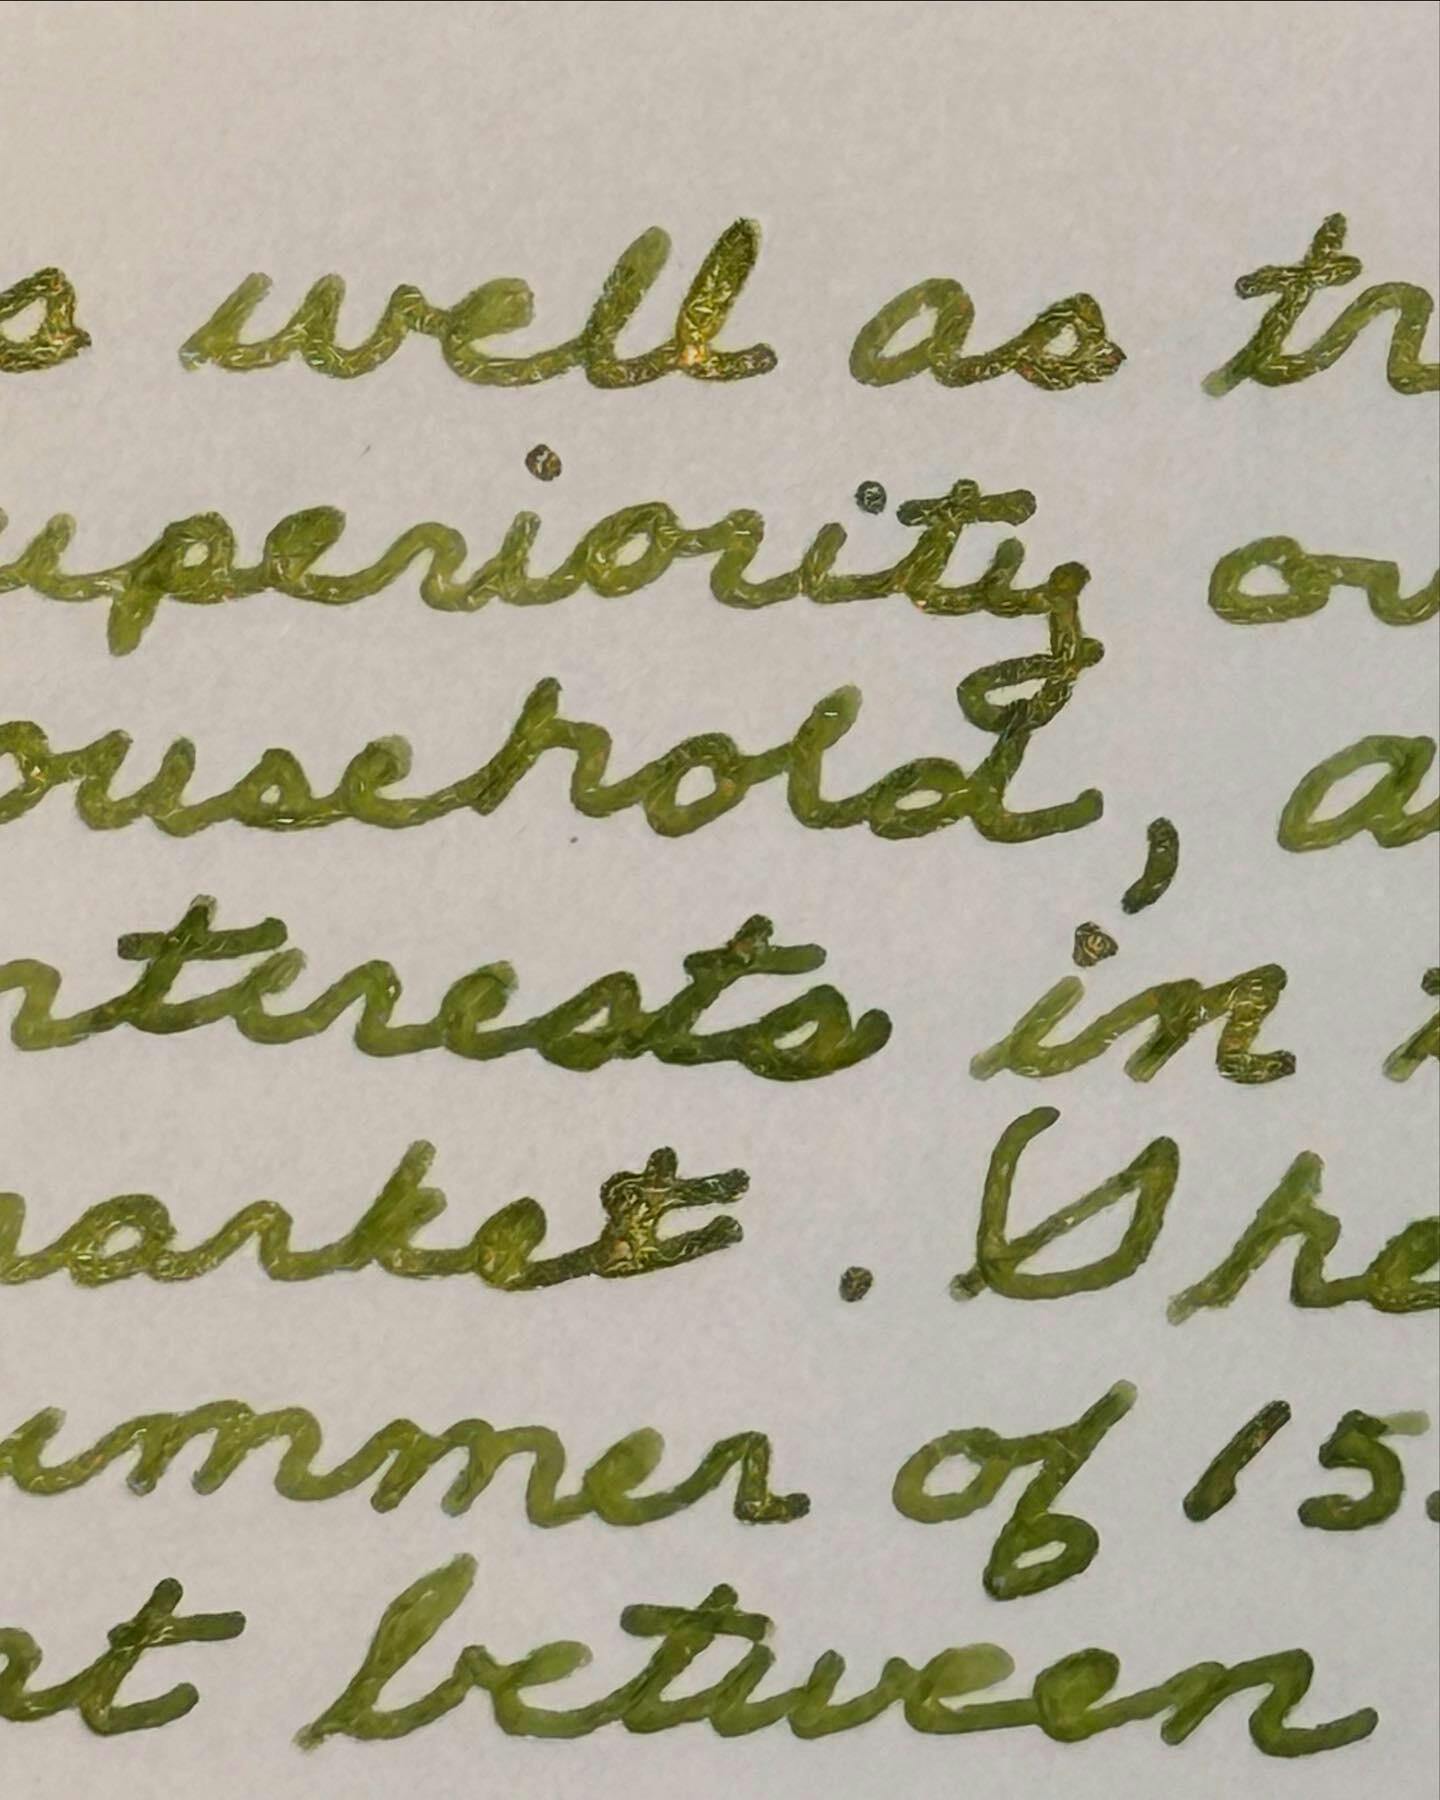 s well as tr
uperiority ov
ousehold, a
nterests in
market. The
ummer of 15
at between